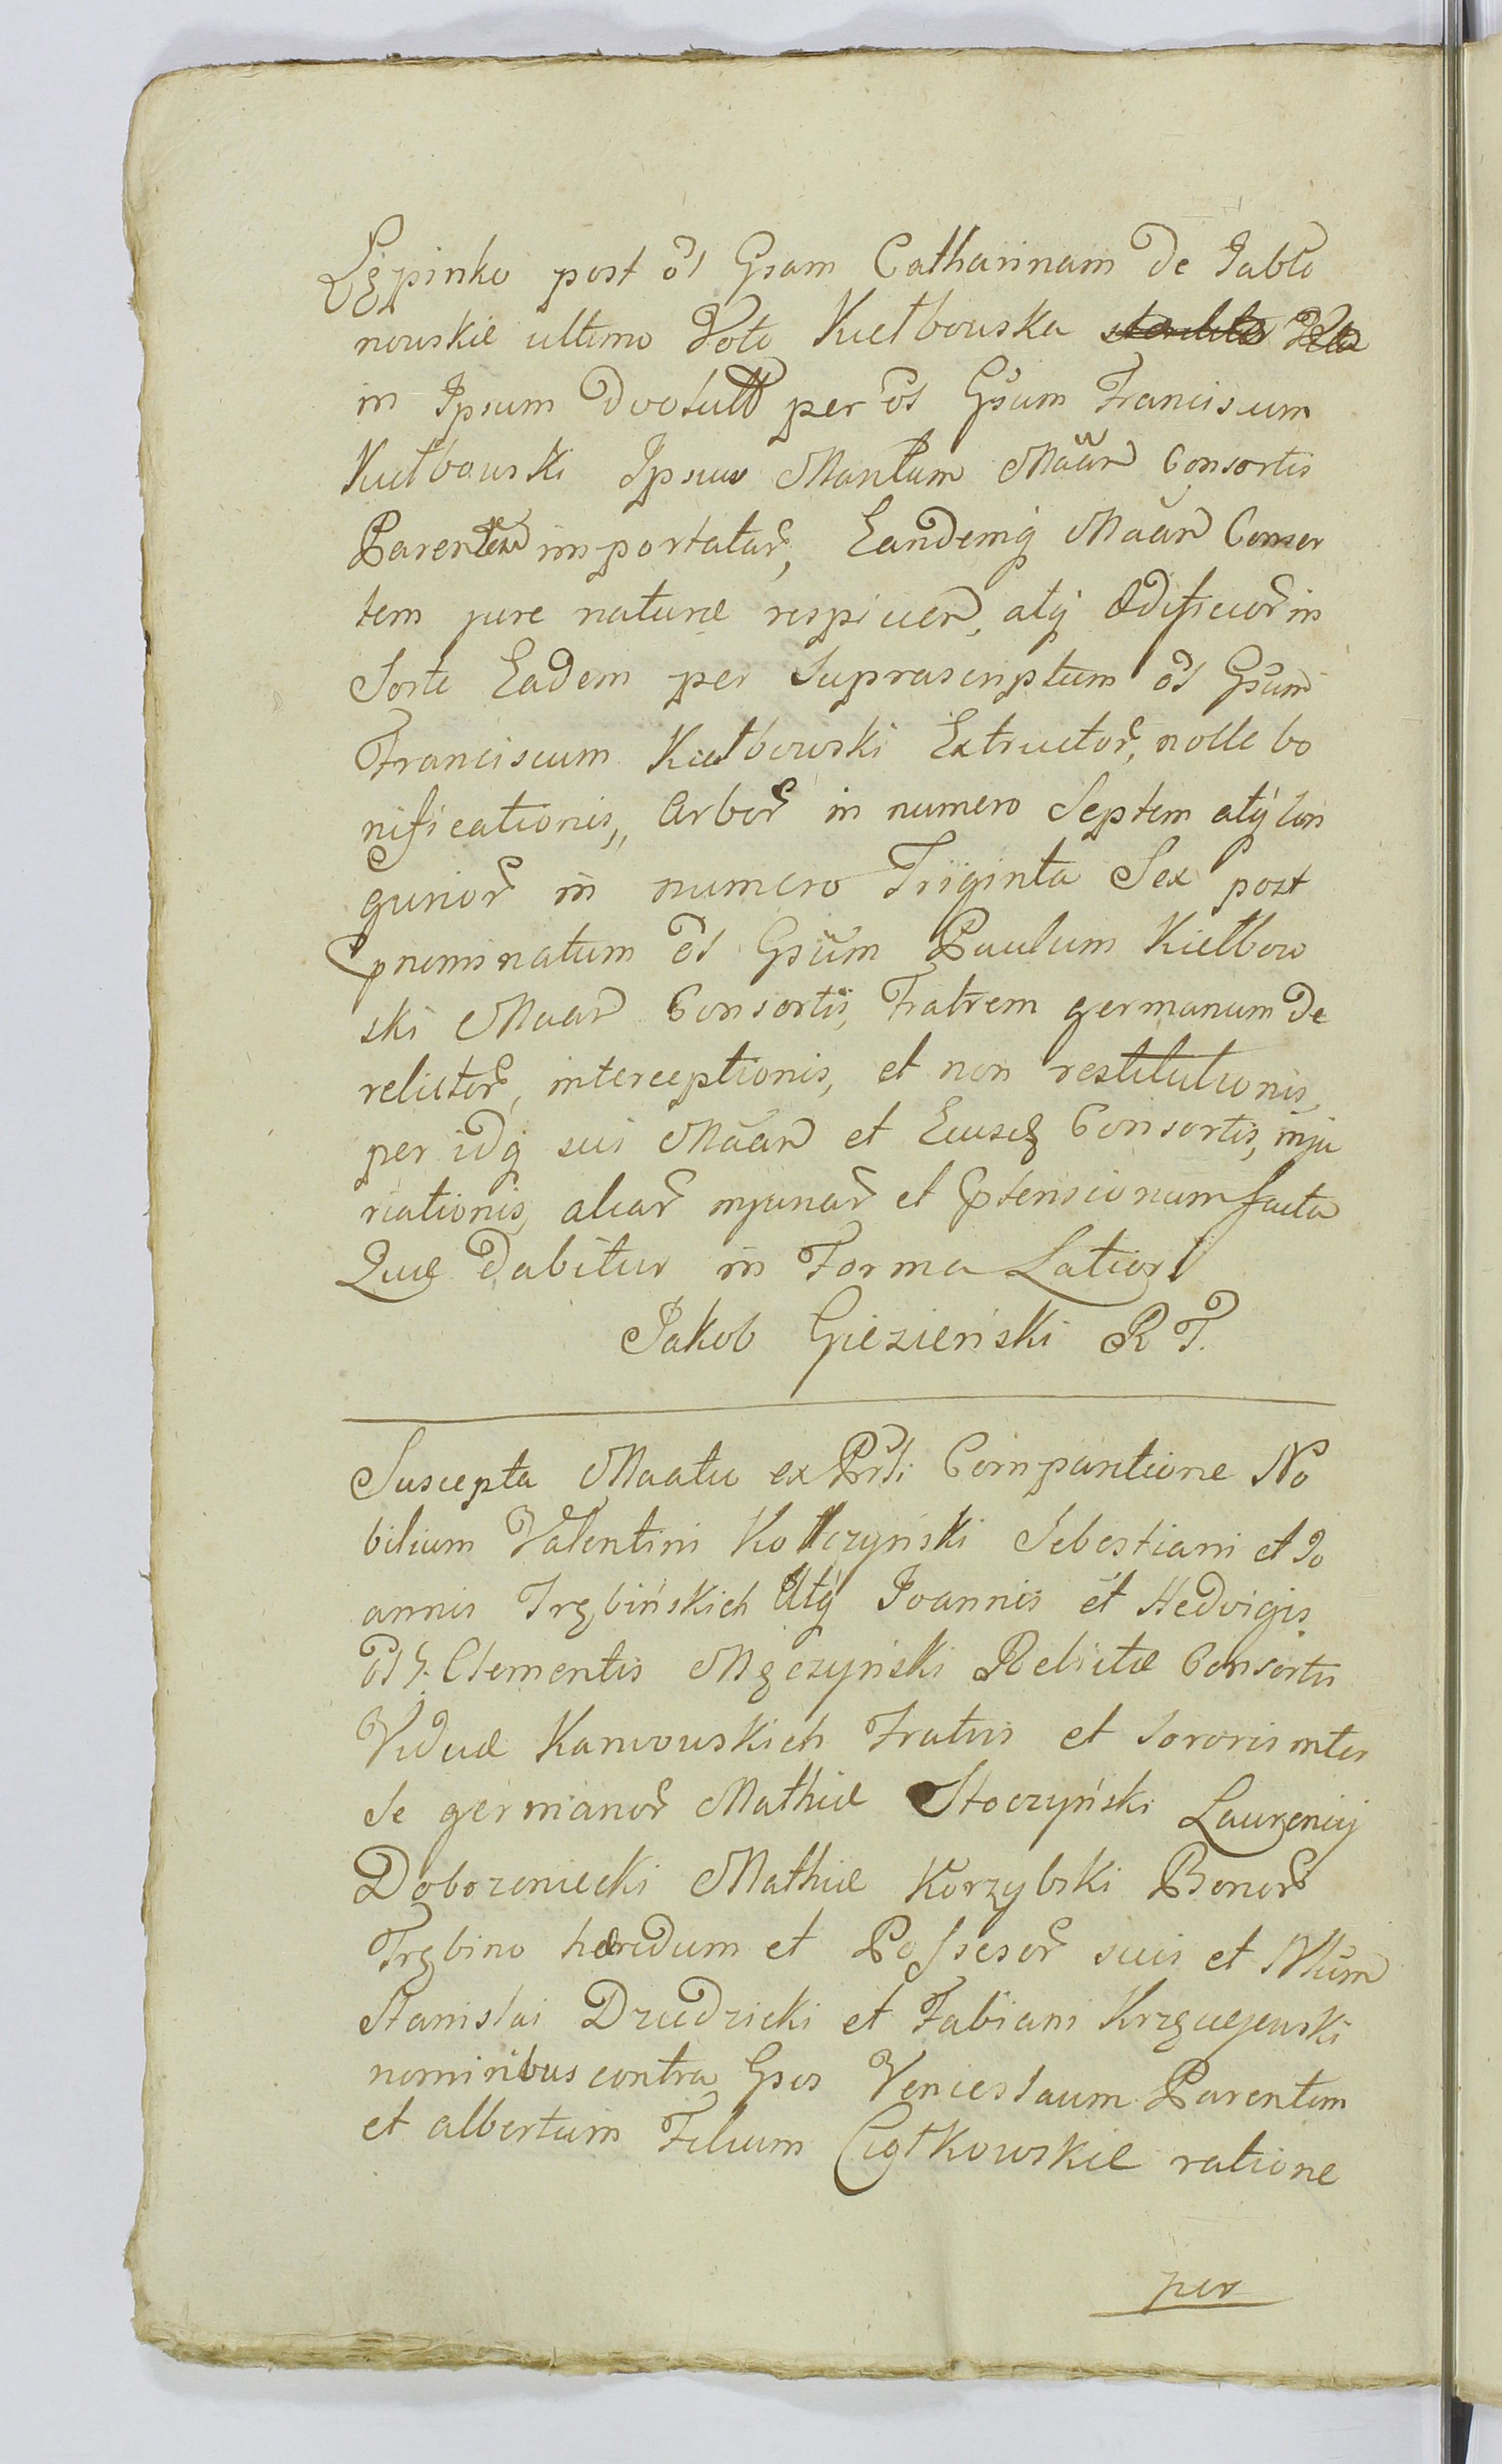 Lępinko post ol Gsam Catharinam de Jabło
nowskie ultimo Voto Kiełbowska
in Ipsum devolutt per ol Gsum Franciscum
Kiełbowski Ipsius Maritum Māār Consortis
Parentem importatar, Eandemq Māār Conser
tem jure naturæ respicien, atq Ædificior in
Sorte Eadem per Suprascriptum ol Gsum
Franciscum Kiełbowski Extructor, nolle bo
nificationis, Arbor in numero Septem atq lon
gurior in numero Triginta Sex post
pnominatum ol Gsum Paulum Kiełbow
ski Maar Consortis, Fratrem germanum de
relictor, interceptionis, et non restitutionis,
per idq sui Māār et Eiusd Consortis, inju
riationis, aliar injuriar et Ptensionum facta
Quæ dabitur in Forma Latiori
Jakob Giezieński R T.
Suscepta Maatu ex Prti Compartione No
bilium Valentini Kołczyński Sebestiani et Jo
annis Trębińskich Atq Joannis et Hedvigis
ol G. Clementis Męczyński Relictæ Consortis
Viduæ Karwowskich Fratris et Sororis inter
se germanor Mathiæ Stoczyński Laurencij
Doborzeniecki Mathiæ Korzybski Bonor
Trębino hæredum et Possesor suis et Nlium
Stanislai Drudzicki et Fabiani
nominibus contra Gsos Venceslaum Parentem
et albertum Filium Ciotkowskie ratione
per